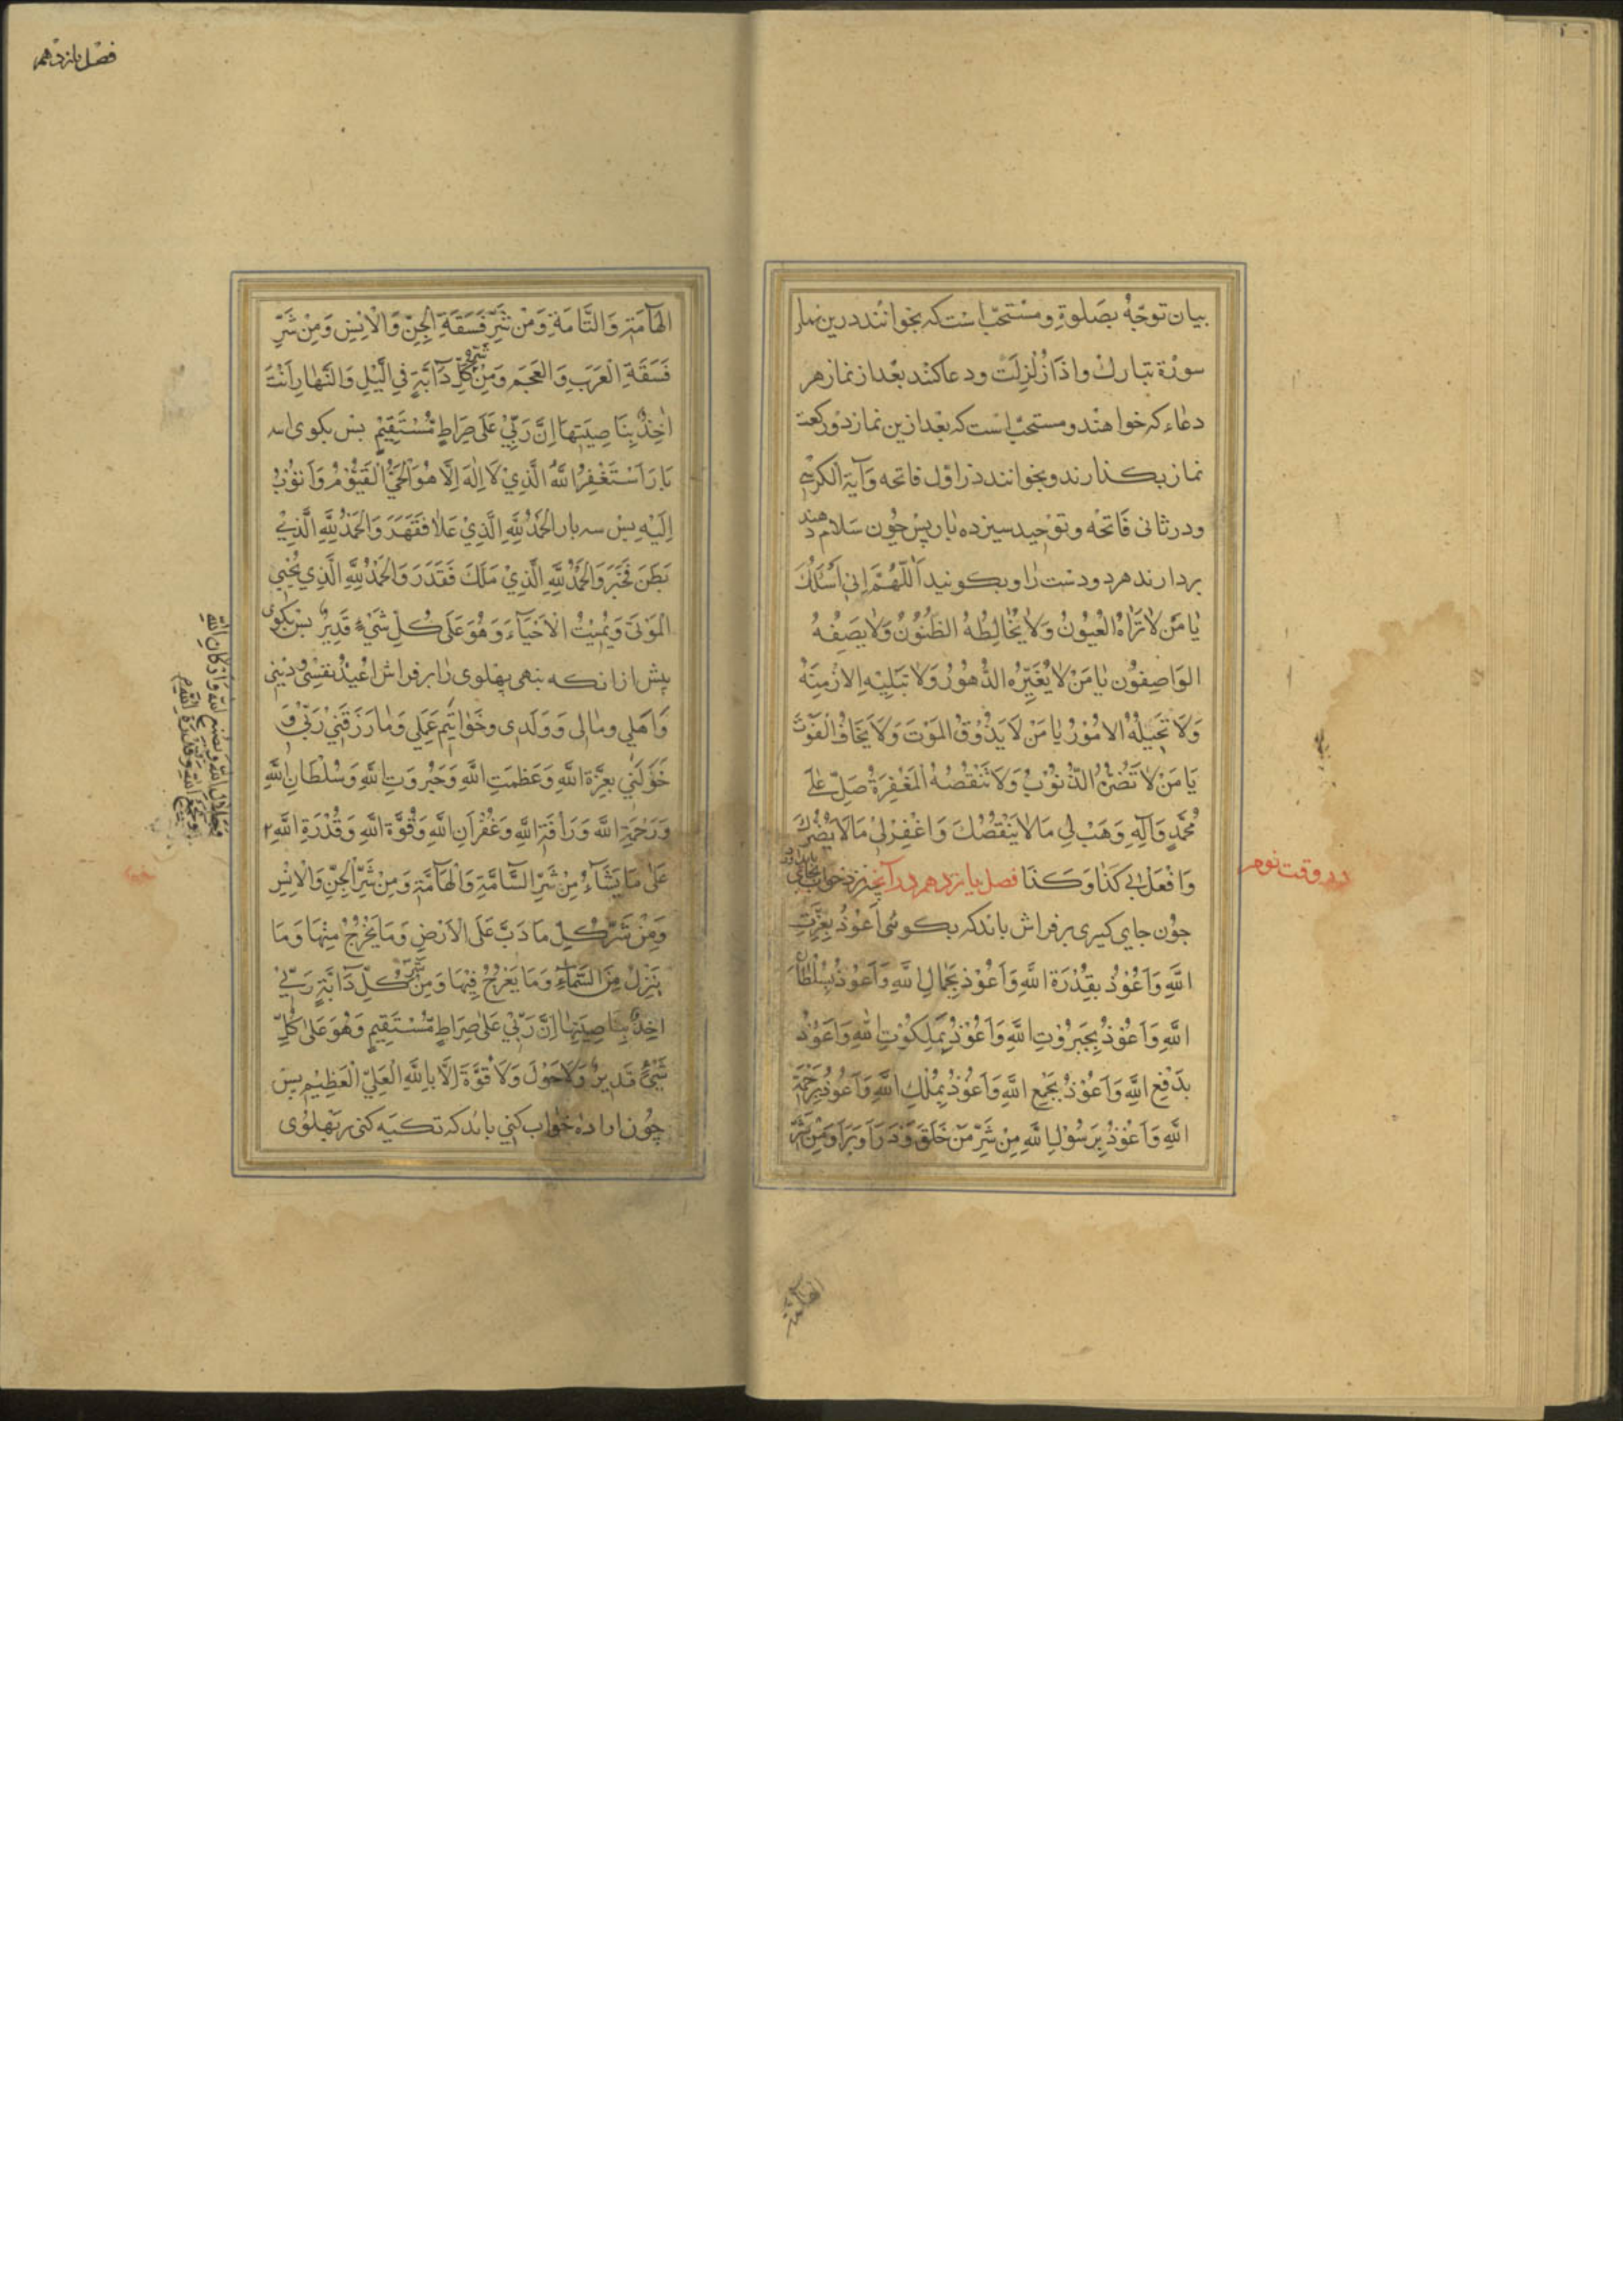 بیان توجّه بصَلوةِ و مسْتحبّ اسْت که بخوانند درین نماز
سورْة تبارك و اذَا زُلْزِلَت و دعا کنند بعْد از نماز هر
دعٰاء که خواهند و مستحبّ اسْت که بعْد ازین نماز دوْ رکعت
نماز بکذارند و بخوانند در اوّل فاتحه وَ آیَة الکرْسی
و در ثانی فَاتحْه و توْحید سیزده بٰار پسْ چوُن سَلام دهند
بردارند هر دو دسْت رٰا و بکویند اَللّهُمَّ اِنّی اَسْئَلُكَ
یٰا مَنْ لاٰ تَرٰاهُ الْعُیوُنُ وَ لاٰ یُخٰالِطُهُ الظُنُوُنُ وَ لاٰ یَصِفُهُ
الوَاصِفوُن یٰا مَنْ لاٰ یُغَیِّرُه الدُّهوُرُ وَ لاٰ تبَلِیْهِ الازْمِنَهُ
وَ لاَ تحُیلُهُ الامُوُرُ یٰا مَنْ لاَ یَذُوْقُ المَوْتَ وَ لاَ یَخَافُ الْفَوْتَ
یَا مَنْ لاٰ تَضُرُّهُ الذُّنوُبُ وَ لاَ تَنْقُصُهُ الْمَغْفِرَةُ صَلِّ عَلَی
مُحَمَّدٍ وَ آلِهِ وَ هَبْ لی مَا لاٰ یَنْقُصُكَ وَ اغْفِرْ لی مَا لاَ یَضُرُّكَ
وَ افْعَلْ بی کَذٰا وَ کَذَا فصل یازدهم در آنچه نزد خواب
در وقت نوم
چوُن جای کیری بر فراش باید که بکوئی اَعوُذُ بِعِزَّتِ
اللَّهِ وَ اَعُوْذُ بِقُدْرَةِ اللَّهِ وَ اَعُوْذُ بِجَمَالِ اللَّهِ وَ اَعوُذُ بِسُلْطَانِ
اللَّهِ وَ اَعُوْذُ بِجَبَرُوْتِ اللَّهِ وَ اَعُوْذُ بِمَلَکوُتِ اللَّهِ وَ اَعُوْذُ
بِدَفْعِ اللَّهِ وَ اَعُوْذُ بِجَمْعِ اللَّهِ وَ اَعُوْذُ بِمُلْكِ اللَّهِ وَ اَعُوْذُ بِرَحْمَةِ
اللَّهِ وَ اَعُوْذُ بِرَسُوْلِ اللَّهِ مِنْ شَرِّ مَنْ خَلَقَ وَ ذَرَاَ وَ بَرَاَ وَ مِنْ شَرِّ
فصْل یازدهم
الْهَآمَّةِ وَ التَّامَةِ وَ مِنْ شَرِّ فَسَقَةِ الْجِنِّ وَ الْاِنْسِ وَ مِنْ شَرِّ
فَسَقَةِ الْعَرَبِ وَ الْعَجَمِ وَ مِنْ شَرِّ کُلِّ دَآبَّةٍ فِی الَّیْلِ وَ النَّهٰارِ اَنْتَ
اٰخِذٌ بِنَاصِیَتِهَا اِنَّ رَبِّیْ عَلَی صِرَاطٍ مُسْتَقِیْمٍ پسْ بکوی سه
بَارَ اَسْتَغْفِرُ اللَّهَ الَّذِیْ لَا اِلٰهَ اِلَّا هُوَ الْحَیُّ الْقَیُّوْمُ وَ اَتُوْبُ
اِلَیْهِ پسْ سه بار الْحَمْدُ لِلَّهِ الَّذِیْ عَلاٰ فَقَهَرَ وَ الْحَمْدُ لِلَّهِ الَّذِیْ
بَطَنَ فَخَبَرَ وَ الْحَمْدُ لِلَّهِ الَّذِیْ مَلَكَ فَقَدَرَ وَ الْحَمْدُ لِلَّهِ الَّذِی یُحْیِی
الْمَوْتَیَ وَ یُمیْتُ الْاَحْیَآءَ وَ هُوَ عَلَی کُلِّ شَیْءٍ قَدِیْرٌ پسْ بکوی
پیش از انکه بنهی پهْلوی رٰا بر فراش اُعیْذُ نَفْسِیْ وَ دیْنی
وَ اَهْلی وَ مٰالی وَ وَلَدی وَ خَوٰاتیْمَ عَمَلی وَ مٰا رَزَقَنی رَبّیْ وَ
خَوَّلَنی بِعِزَّةِ اللَّهِ وَ عَظَمَتِ اللَّهِ وَ جَبْروُتِ اللَّهِ وَ سُلْطَانِ اللَّهِ
وَ رَحْمَةِ اللَّهِ وَ رَاْفَةِ اللَّهِ وَ غُفْرٰانِ اللَّهِ وَ قُوَّةِ اللَّهِ وَ قُدْرَةِ اللَّهِ ٢
عَلیٰ مَا یَشَآءُ مِنْ شَرِّ السَّآمَّةِ وَ الْهَآمَّةِ وَ مِنْ شَرِّ الْجِنِّ وَ الْاِنْسِ
وَ مِنْ شَرِّ کُلِّ مَا دَبَّ عَلَی الْاَرْضِ وَ مَا یَخْرُجُ مِنْهَا وَ مَا
یَنْزِلُ مِنَ السَّمَآءِ وَ مَا یَعْرُجُ فِیْهَا وَ مِنْ شَرِّ کُلِّ دَآبَّةٍ رَبّیْ
اٰخِذٌ بِنَاصِیَتِهٰا اِنَّ رَبّیْ عَلیٰ صِرَاطٍ مُسْتَقِیمٍ وَ هُوَ عَلیٰ کُلِّ
شَیْءٍ قَدِیرٌ وَ لَا حَوْلَ وَ لَا قُوَّةَ اِلَّا بِاللَّهِ الْعَلِیِّ الْعَظِیْمِ پسْ
چوُن اراده خواب کنی باید که تکیَه کنی بر پَهْلوُی